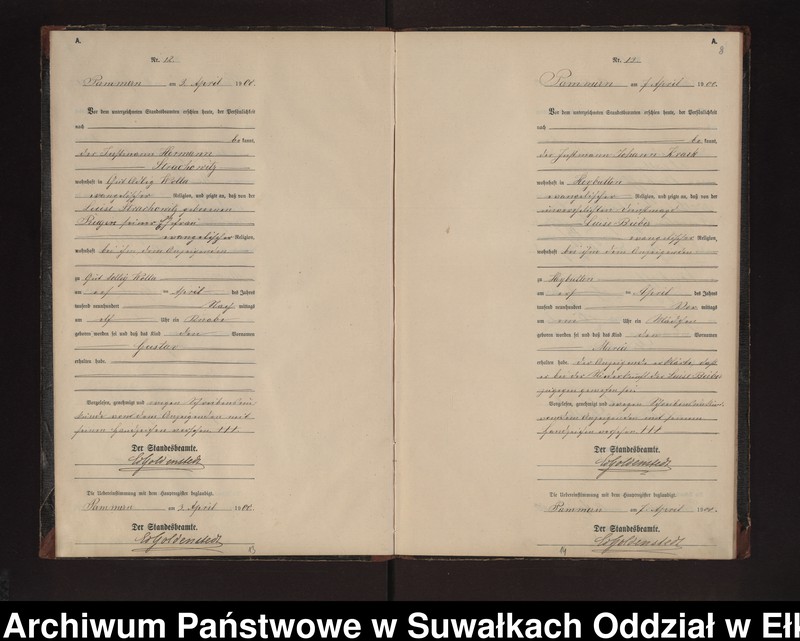 A.
Nr. 12.
Pammern am 3. April 1900.
Vor dem unterzeichneten Standesbeamten erschien heute, der Persönlichkeit
nach
be kannt,
der Instmann Hermann
wohnhaft in Gut Adlig Wolla
evangelischer Religion, und zeigte an, daß von der
geborenen
seiner Ehefrau
evangelischer Religion,
wohnhaft bei ihm dem Anzeigenden
zu Gut Adlig Wolla
am April des Jahres
tausend neunhundert Nach mittags
um Uhr ein Knabe
geboren worden sei und daß das Kind den Vornamen
Gustav
erhalten habe.
Vorgelesen, genehmigt und wegen Schreibensun-
kunde von dem Anzeigenden mit
seinen Handzeichen versehen †††.
Der Standesbeamte.
Goldenstedt
Die Uebereinstimmung mit dem Hauptregister beglaubigt.
Pammern am 3. April 1900.
Der Standesbeamte.
Goldenstedt
13
A.
8
Nr. 13.
Pammern am 7. April 1900.
Vor dem unterzeichneten Standesbeamten erschien heute, der Persönlichkeit
nach
be kannt,
der Instmann Johann
wohnhaft in
evangelischer Religion, und zeigte an, daß von der
unverehelichten Dienstmagd
evangelischer Religion,
wohnhaft bei ihm dem Anzeigenden
zu
am April des Jahres
tausend neunhundert Vor mittags
um Uhr ein Mädchen
geboren worden sei und daß das Kind den Vornamen
Marie
erhalten habe. Der Anzeigende erklärte, daß
er bei der Niederkunft der
zugegen gewesen sei
Vorgelesen, genehmigt und wegen
von dem Anzeigenden mit seinem
Handzeichen versehen †††
Der Standesbeamte.
Goldenstedt
Die Uebereinstimmung mit dem Hauptregister beglaubigt.
Pammern am 7. April 1900.
Der Standesbeamte.
Goldenstedt
14
Archiwum Państwowe w Suwałkach Oddział w Eł